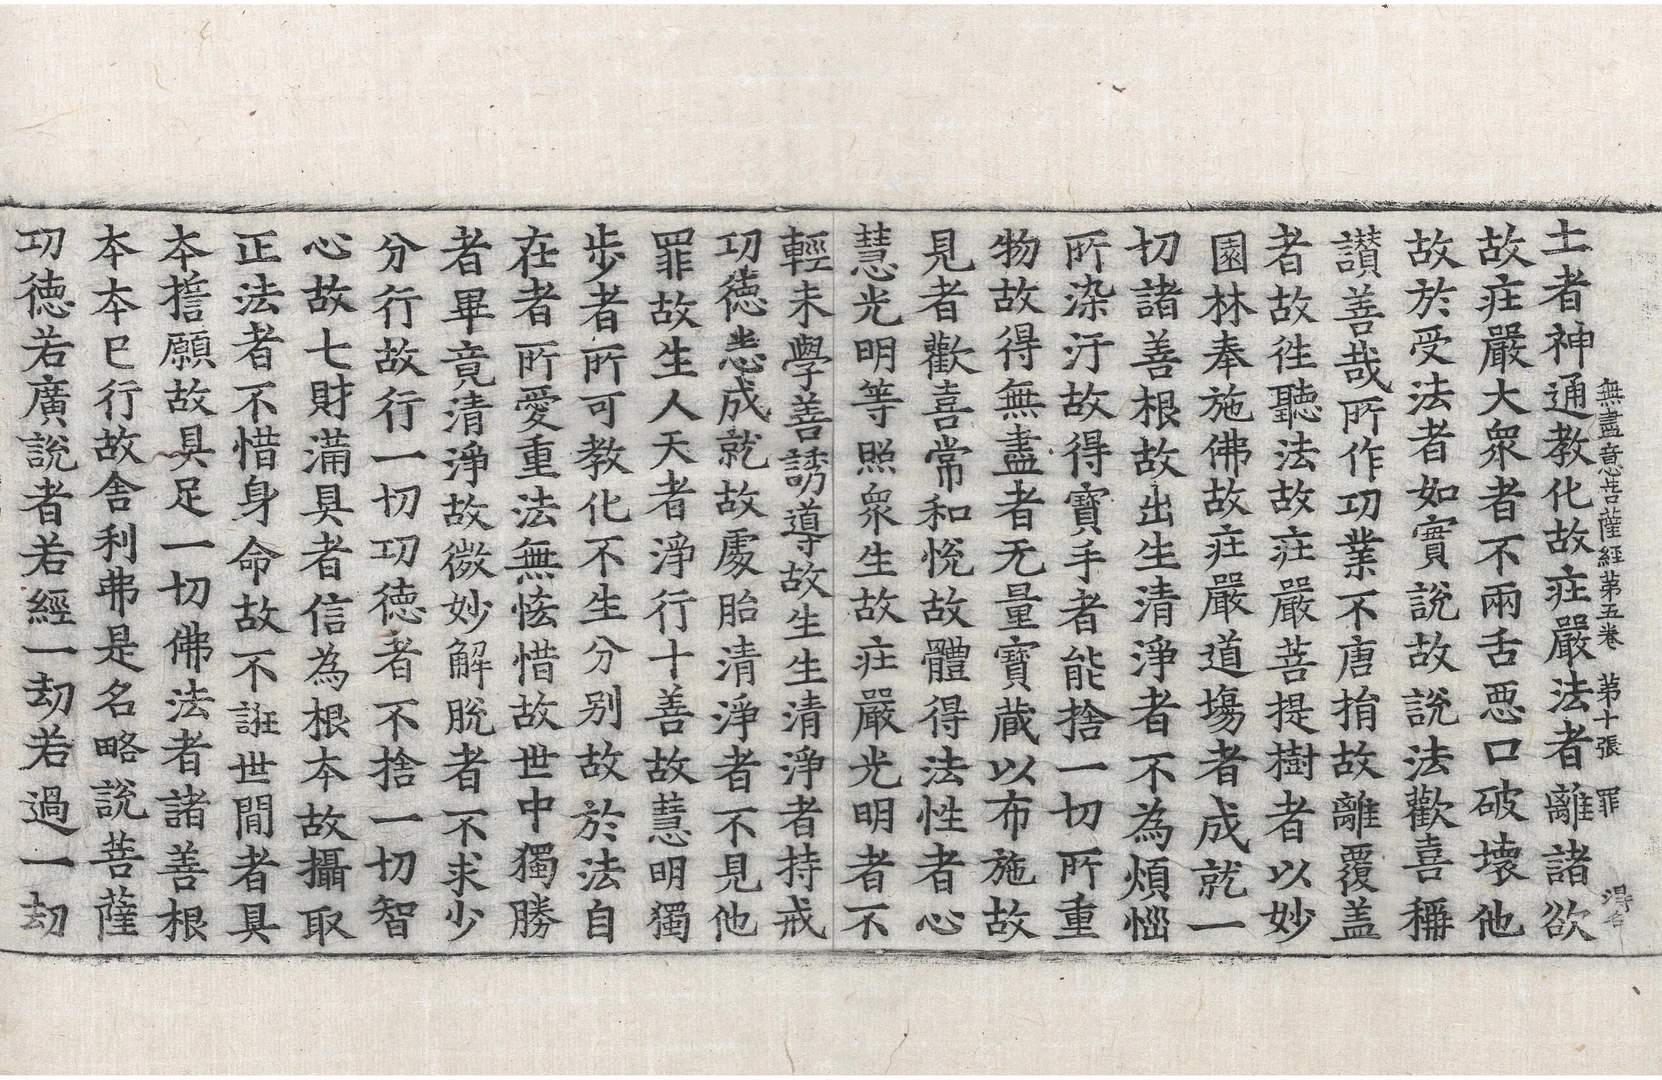 無盡意菩薩經第五卷　第十張　罪
土者神通教化故庄嚴法者離諸欲
故庄嚴大衆者不兩舌惡口破壞他
故於受法者如實說故說法歡喜稱
讃善哉所作功業不唐捐故離覆盖
者故徃聽法故庄嚴菩提樹者以妙
園林奉施佛故庄嚴道塲者成就一
切諸善根故出生清淨者不為煩惱
所染汙故得寶手者能捨一切所重
物故得無盡者无量寶藏以布施故
見者歡喜常和悅故體得法性者心
慧光明等照衆生故庄嚴光明者不
輕未學善誘導故生生清淨者持戒
功德悉成就故處胎清淨者不見他
罪故生人天者淨行十善故慧明獨
步者所可教化不生分别故於法自
在者所愛重法無恡惜故世中獨勝
者畢竟清淨故微妙解脫者不求少
分行故行一切功德者不捨一切智
心故七財滿具者信為根本故攝取
正法者不惜身命故不誑世間者具
本擔願故具足一切佛法者諸善根
本本巳行故舍利弗是名略說菩薩
功德若廣說者若經一劫若過一劫